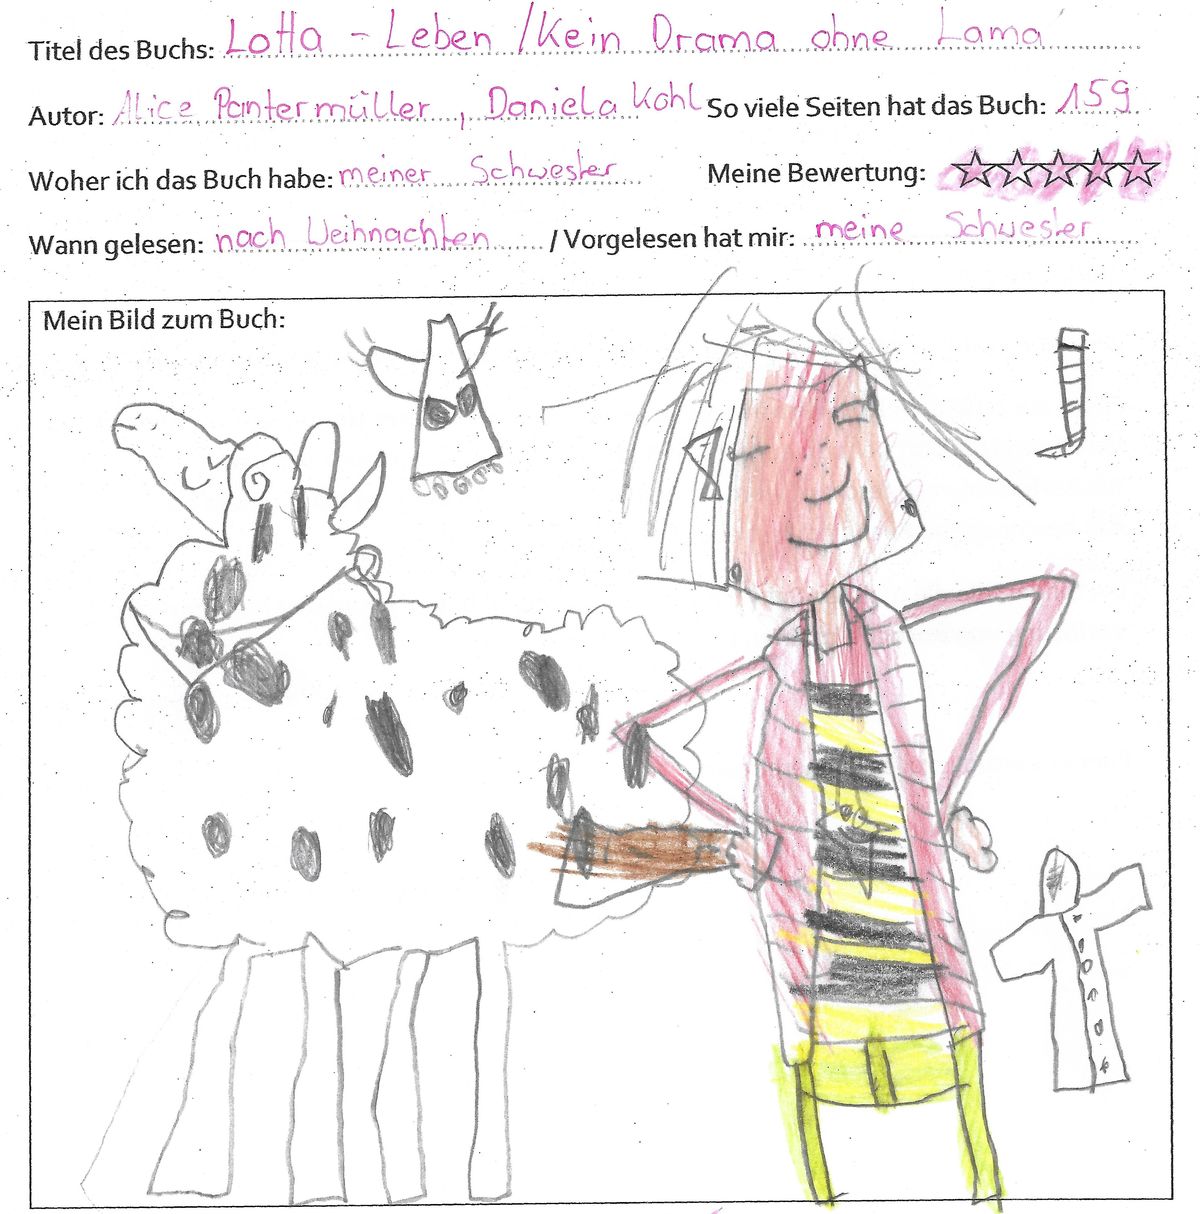 Titel des Buchs: Lotta - Leben / Kein Drama ohne Lama
Autor: Alice Pantermüller, Daniela Kohl So viele Seiten hat das Buch: 159
Woher ich das Buch habe: meiner Schwester Meine Bewertung:
Wann gelesen: nach Weihnachten / Vorgelesen hat mir: meine Schwester
Mein Bild zum Buch: